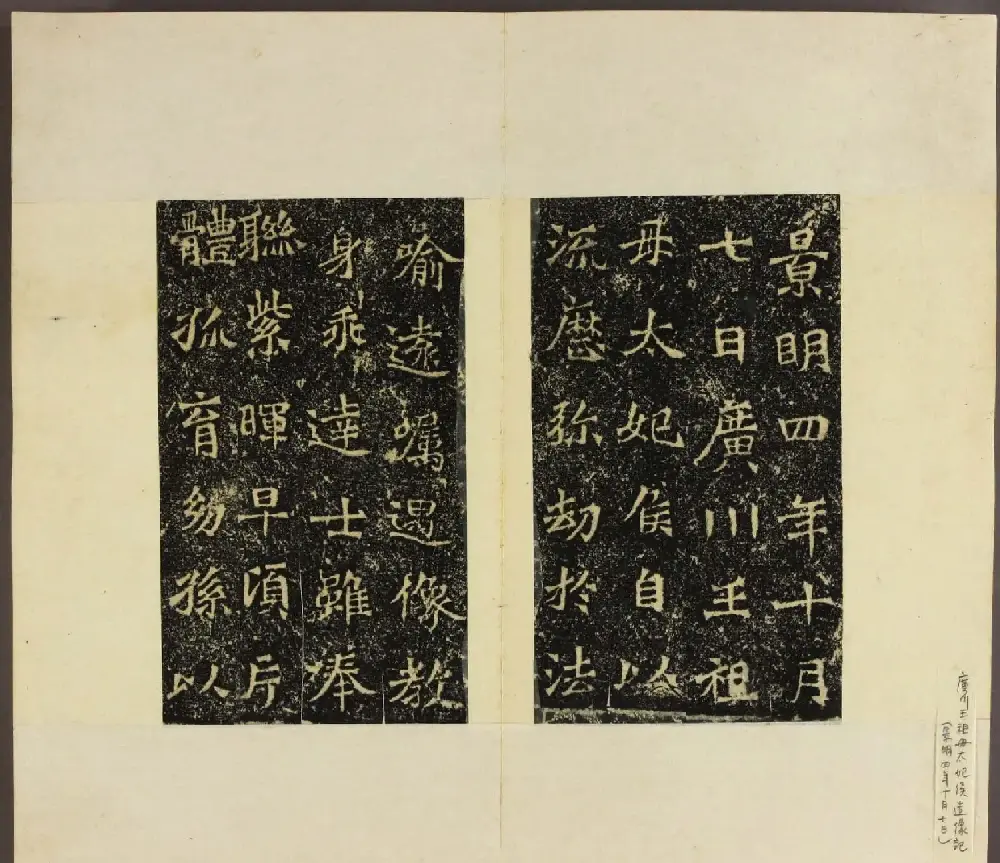 景明四年十月
七日廣川王祖
母太妃侯自以
流歷弥劫於法
喻遠囑遇像教
身乖達士雖奉
聯紫暉早頃片
體孤育幼孫以
廣川王祖母太妃侯造像記
(景明四年十月七日)